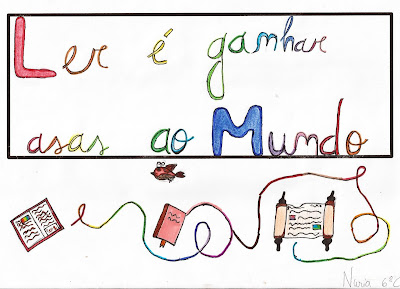 Ler é ganhar
asas ao Mundo
Nuria 6ºC